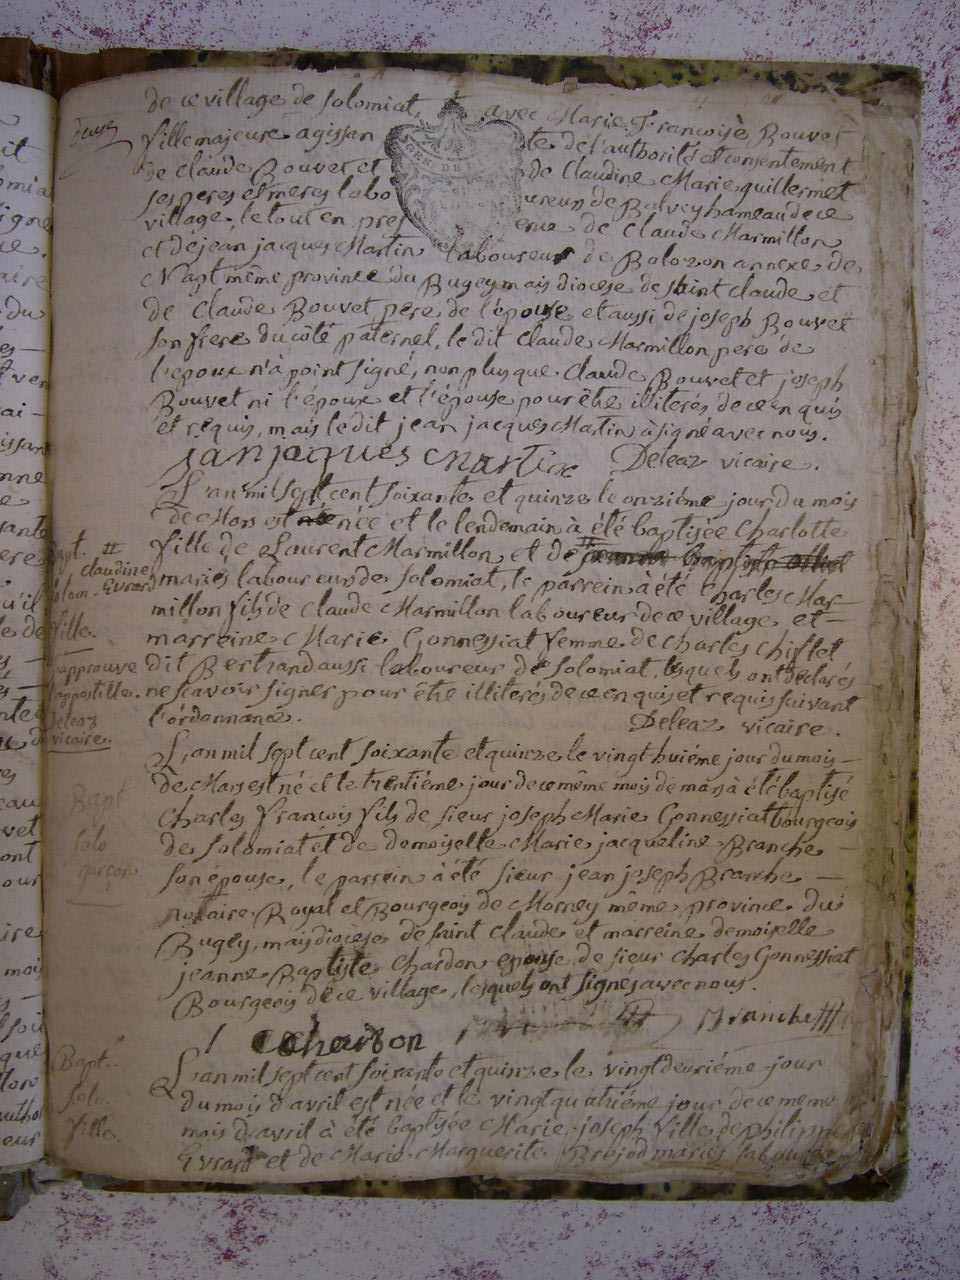 de ce village de solomiat, avec Marie Francoise Bouvet
fille majeure agissan te de l'authorité et consentement
de claude Bouvet et de claudine Marie guillermet
ses peres et meres labo ureurs de hameau de ce
village, le tout en pres ence de claude Marmillon
et de jean jacques Martin laboureur de Bolozon annexe de
Napt même province du Bugey mais diocese de saint claude et
de claude Bouvet pere de l'épouse et aussi de joseph Bouvet
son frere du côté paternel, le dit claude Marmillon pere de
l'epoux n'à point signé, non plus que claude Bouvet et joseph
Bouvet ni l'époux et l'épouse pour être illiterés de ce enquis
et requis, mais le dit jean jacques Martin à signé avec nous.
jan jaques Martin Deleaz vicaire.
L'an mil sept cent soixante et quinze le onziéme jour du mois
de Mars est née et le lendemain à été baptisée charlotte
fille de Laurent Marmillon et de #
mariés laboureurs de solomiat, le parrein à été charles Mar-
millon fils de claude Marmillon laboureur de ce village et
marreine Marie Gonnessiat femme de charles chiflet
dit Bertrand aussi laboureur de solomiat, lesquels ont déclarés
ne scavoir signer pour être illiterés de ce enquis et requis suivant
l'ordonnance. Deleaz vicaire.
Bapt. #
claudine
Evrard
fille.
j'approuve
l'appostille.
Deleaz
vicaire.
L'an mil sept cent soixante et quinze le vingt huiéme jour du mois
de Mars est né et le trentiéme jour de ce même mois de mars à été baptisé
charles Francois fils de sieur joseph Marie Gonnessiat bourgeois
de solomiat et de demoiselle Marie jacqueline Branche
son épouse, le parrein à été sieur jean joseph Branche
notaire Royal et Bourgeois de Morney même province du
Bugey, mais diocese de saint claude et marreine demoiselle
jeanne Baptiste chardon epouse de sieur charles Gonnessiat
Bourgeois de ce village, lesquels ont signés avec nous.
Bapt
solo
garçon
Chardon Branche
L'an mil sept cent soixante et quinze le vingt deuxiéme jour
du mois d'avril est née et le vingt quatriéme jour de ce meme
mois d'avril à été baptisée Marie joseph fille de philippe
Evrard et de Marie Marguerite mariés
Bapt.
solo.
fille.